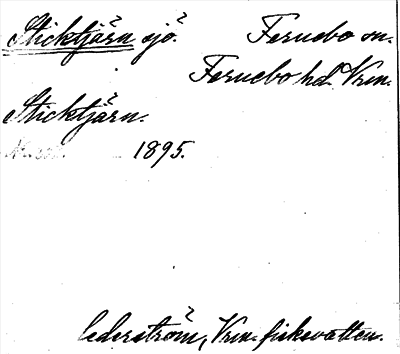 Sticktjärn sjö. Fernebo sn.
Fernebo hd Vrm.
Sticktjärn.
1895.
Cederström, Vrm. fiskevatten.